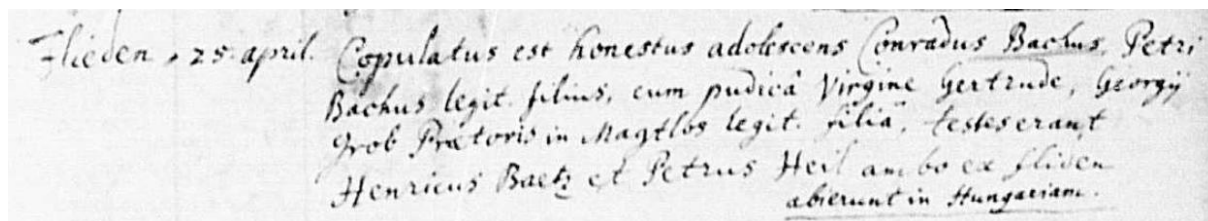 Flieden, 25. april. Copulatus est honestus adolescens Conradus Bachus, Petri
Bachus legit. filius, cum pudicâ Virgine Gertrude, Georgij
Grob Prætoris in Magtlos legit. filiâ, testes erant
Henricus Baetz et Petrus Heil ambo ex fliden
abierunt in Hungariam.